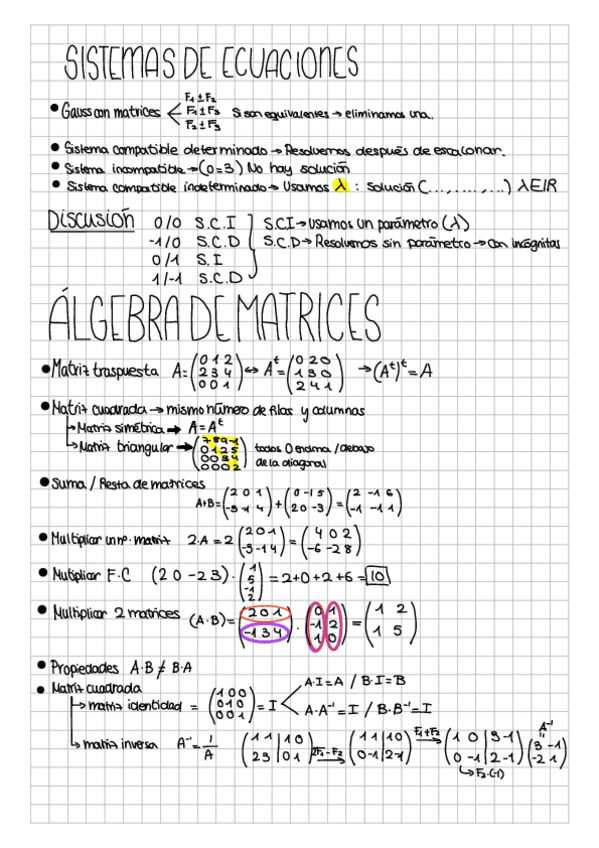 SISTEMAS DE ECUACIONES
• Gauss con matrices < F₁ ± F₂
F₁ ± F₃ Si son equivalentes → eliminamos una.
F₂ ± F₃
• Sistema compatible determinado → Resolvemos después de escalonar.
• Sistema incompatible → (0=3) No hay solución
• Sistema compatible indeterminado → Usamos λ : Solución (..., ..., ...) λ∈IR
Discusión 0/0 S.C.I S.C.I → Usamos un parámetro (λ)
-1/0 S.C.D S.C.D → Resolvemos sin parámetro → Con incógnitas
0/1 S.I
1/-1 S.C.D
ÁLGEBRA DE MATRICES
• Matriz traspuesta A = (0 1 2 / 2 3 4 / 0 0 1) ↔ Aᵗ = (0 2 0 / 1 3 0 / 2 4 1) → (Aᵗ)ᵗ = A
• Matriz cuadrada → mismo número de filas y columnas
↳ Matriz simétrica → A = Aᵗ
↳ Matriz triangular → (7 8 9 -1 / 0 1 2 5 / 0 0 3 4 / 0 0 0 2) todos 0 encima / debajo
de la diagonal
• Suma / Resta de matrices
A+B = (2 0 1 / -3 -1 4) + (0 -1 5 / 2 0 -3) = (2 -1 6 / -1 -1 1)
• Multiplicar un nº · matriz 2·A = 2 (2 0 1 / -3 -1 4) = (4 0 2 / -6 -2 8)
• Multiplicar F·C (2 0 -2 3) · (1 / 5 / -1 / 2) = 2+0+2+6 = 10
• Multiplicar 2 matrices (A·B) = (2 0 1 / -1 3 4) · (0 1 / -1 2 / 1 0) = (1 2 / 1 5)
• Propiedades A·B ≠ B·A
• Matriz cuadrada
↳ matriz identidad = (1 0 0 / 0 1 0 / 0 0 1) = I < A·I=A / B·I=B
A·A⁻¹=I / B·B⁻¹=I
↳ matriz inversa A⁻¹ = 1/A (1 1 | 1 0 / 2 3 | 0 1) 2F₁-F₂ → (1 1 | 1 0 / 0 -1 | 2 -1) F₁+F₂ → (1 0 | 3 -1 / 0 -1 | 2 -1) A⁻¹ = (3 -1 / -2 1)
↳ F₂·(-1)